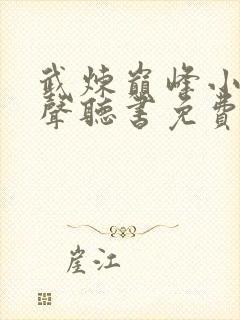 武煉巔峰小
聲聽書免費
崖江